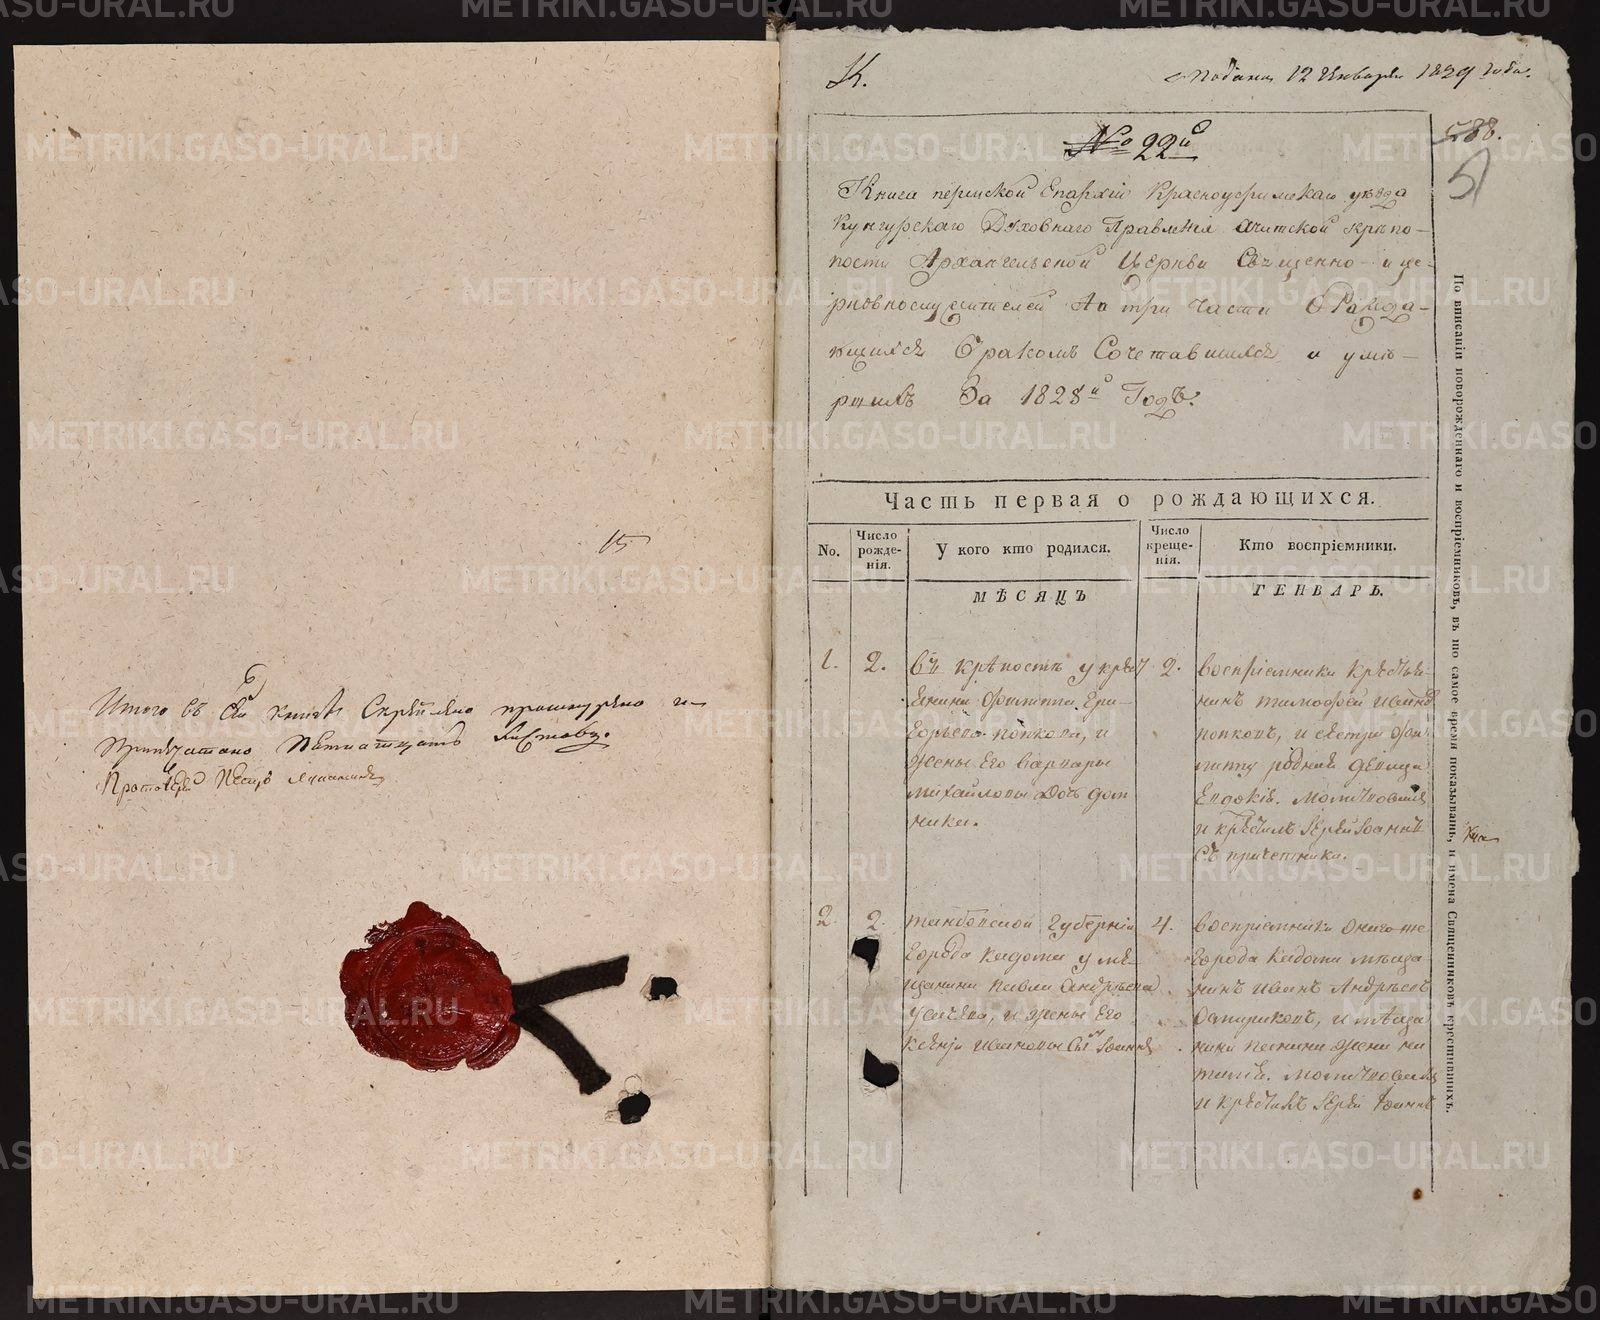 15
Итого въ сей книгѣ скрѣплено прошнурено и
припечатано пятнатцать листовъ.
Протоіерей Петръ
К.
Подана 12 Января 1829 года.
№ 22й
588.
51
Книга пермской Епархіи Красноуфимскаго уѣзда
Кунгурскаго Духовнаго Правленія Ачитской крѣпо-
пости Архангельской Церкви Священно- и це-
рковнослужителей На три части О Ражда-
ющихся Бракомъ Сочетавшихся и уме-
ршихъ За 1828й Годъ.
Часть первая о рождающихся.
No.
Число рожде-нія.
У кого кто родился.
Число креще-нія.
Кто воспріемники.
МѢСЯЦЪ
ГЕНВАРЬ.
1.
2.
Въ крѣпости у крест
янина Филиппа Гри-
горьева попкова, и
жены Его варвары
михайловы дочь дом
ника.
2.
воспріемники крестья-
нинъ тимофей Ивановъ
попковъ, и сестра фи
липпу родная девица
Евдокія. Молитвовалъ
и крестилъ Іерей Іоаннъ
съ причетники.
2.
2.
танбовской губерніи
города кадома у мѣ-
щанина павла Андрѣева
и жены Его
ксеніи Ивановы Сынъ Іоаннъ
4.
воспріемники онаго же
города кадома мѣща-
нинъ Иванъ Андрѣевъ
и мѣща
нина жена на
талія. Молитвовалъ
и крестилъ Іерей Іоаннъ
По вписаніи новорожденнаго и воспріемниковъ, въ то самое время показывать, и имена Священниковъ крестившихъ.
METRIKI.GASO-URAL.RU